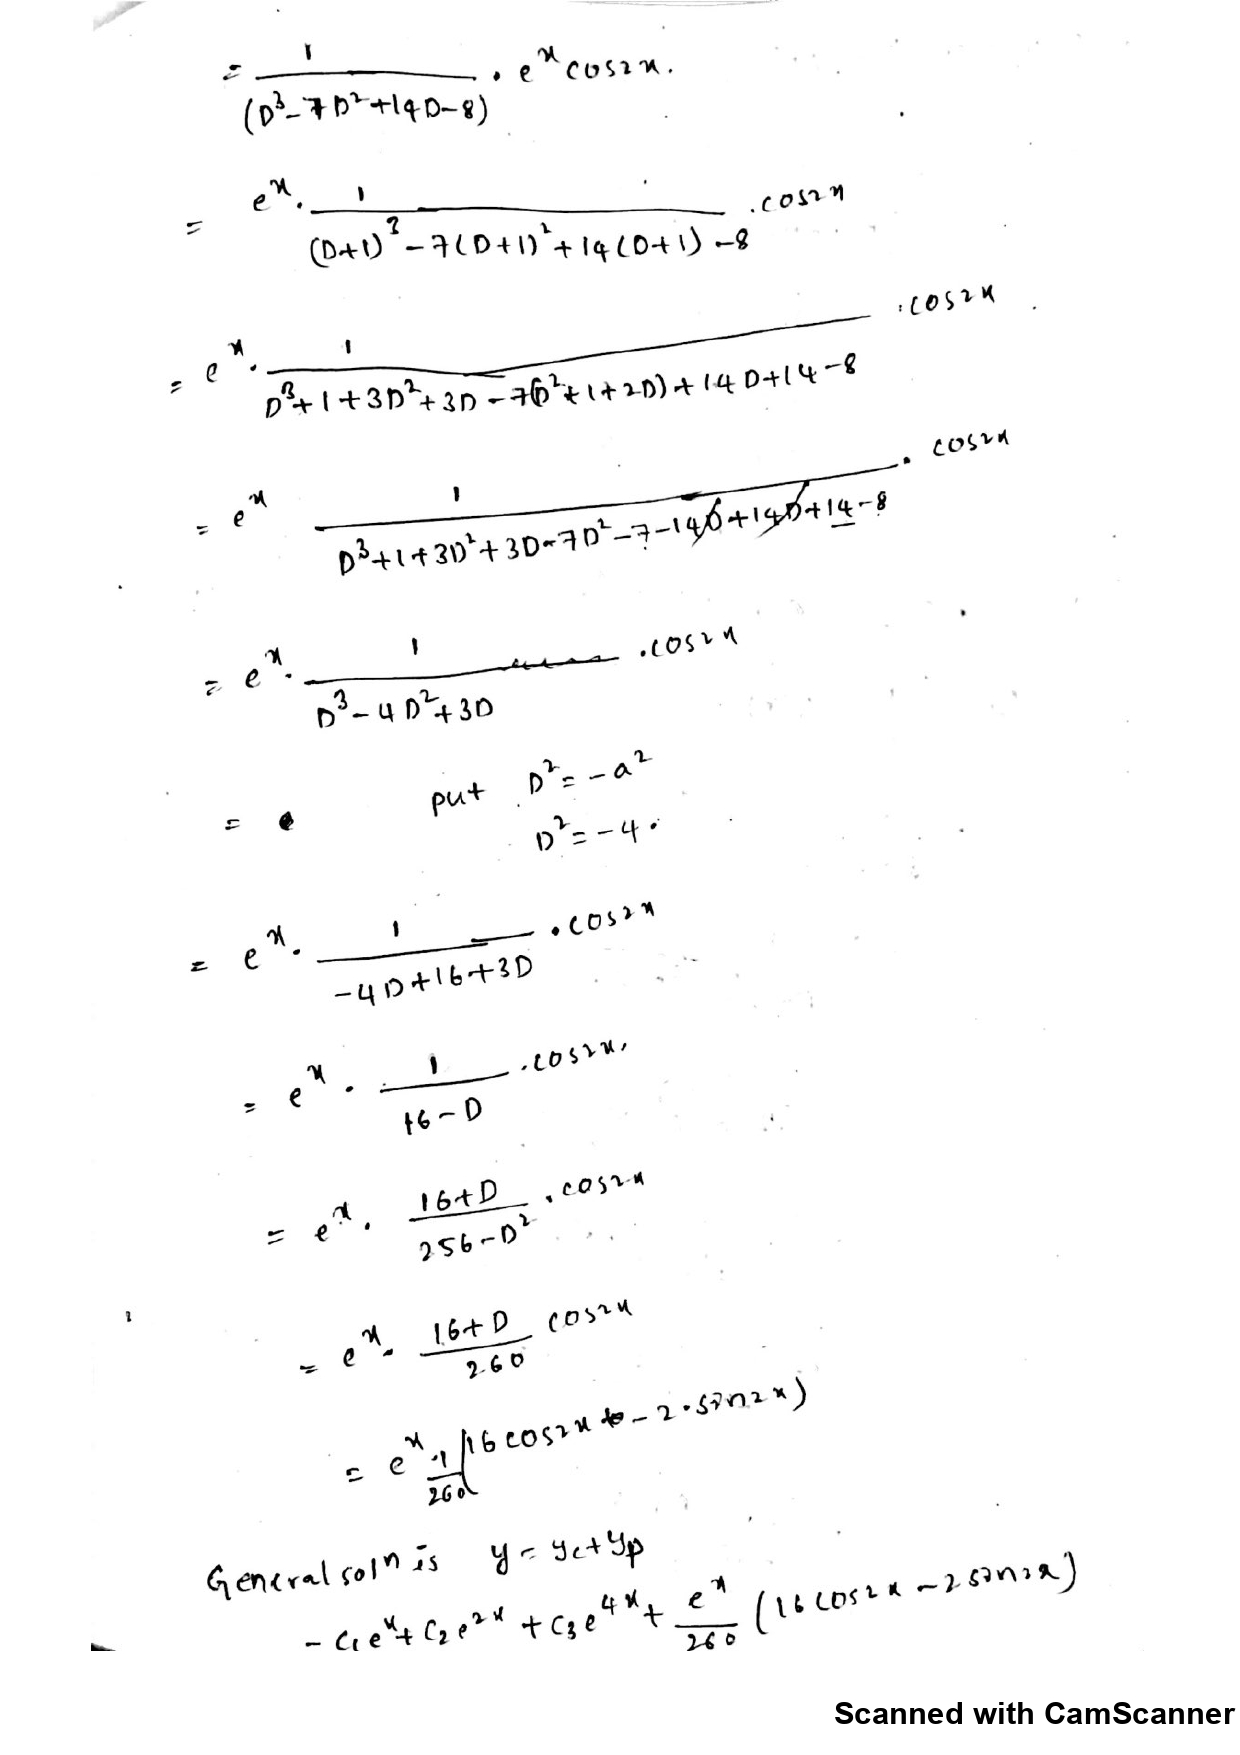 = 1/(D³-7D²+14D-8) . eˣ cos2x.
= eˣ. 1/((D+1)³-7(D+1)²+14(D+1)-8) .cos2x
= eˣ. 1/(D³+1+3D²+3D-7(D²+1+2D)+14D+14-8) .cos2x
= eˣ 1/(D³+1+3D²+3D-7D²-7-14D+14D+14-8) . cos2x
= eˣ. 1/(D³-4D²+3D) .cos2x
put D²=-a²
= e D²=-4.
= eˣ. 1/(-4D+16+3D) .cos2x
= eˣ. 1/(16-D) .cos2x.
= eˣ. (16+D)/(256-D²) .cos2x
= eˣ. (16+D)/260 cos2x
= eˣ .1/260 (16cos2x - 2.sin2x)
General solⁿ is y = yc+yp
- c₁eˣ+c₂e²ˣ+c₃e⁴ˣ+ eˣ/260 (16cos2x-2sin2x)
Scanned with CamScanner